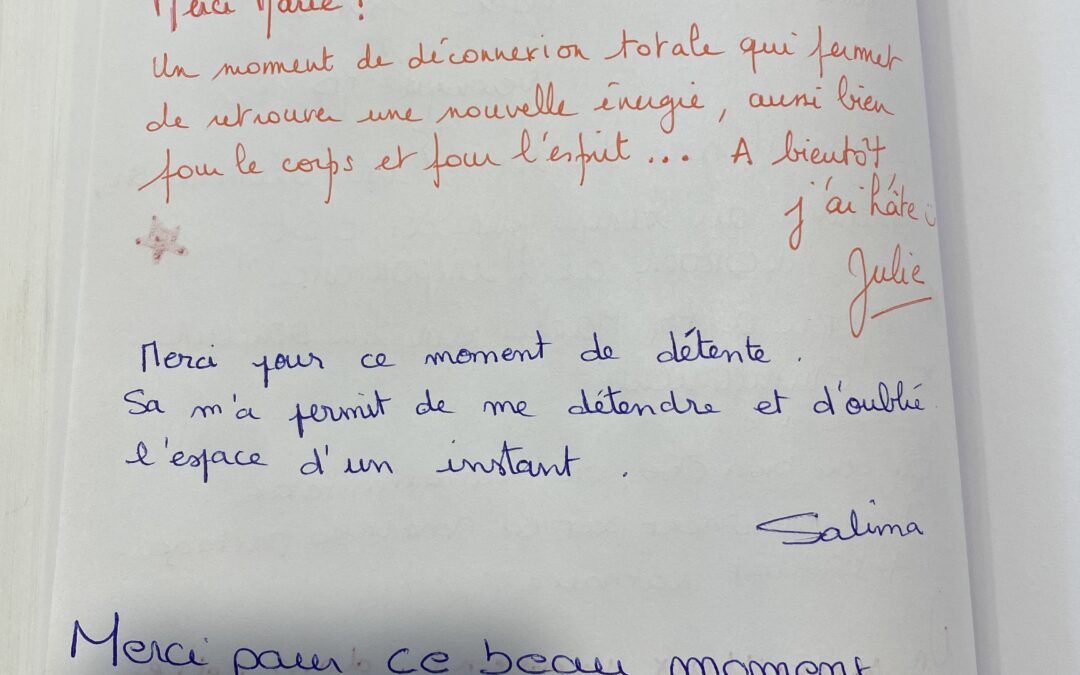 Merci Marie !
Un moment de déconnexion totale qui permet
de retrouver une nouvelle énergie, aussi bien
pour le corps et pour l'esprit... A bientôt
j'ai hâte :)
Julie
Merci pour ce moment de détente.
Sa m'a permit de me détendre et d'oublié
l'espace d'un instant.
Salima
Merci pour ce beau moment